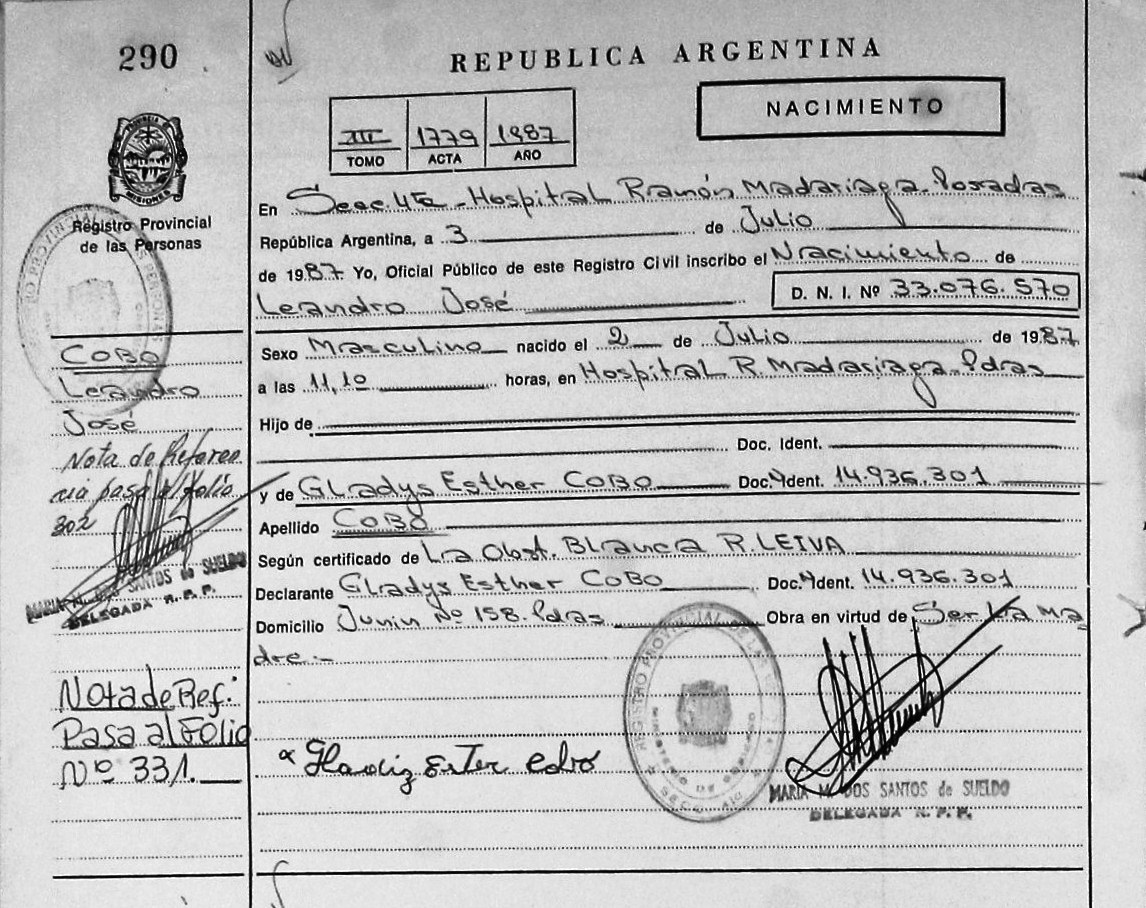 290
REPUBLICA ARGENTINA
NACIMIENTO
III 1779 1987
TOMO ACTA AÑO
MISIONES
Registro Provincial
de las Personas
En Secc. 4ta - Hospital Ramón Madariaga. Posadas
República Argentina, a 3 de Julio
de 1987 Yo, Oficial Público de este Registro Civil inscribo el Nacimiento de
Leandro José D. N. I. Nº 33.076.570
Sexo Masculino nacido el 2 de Julio de 1987
a las 11,10 horas, en Hospital R. Madariaga. Pdas
Hijo de
Doc. Ident.
y de Gladys Esther COBO Doc. Ident. 14.936.301
Apellido COBO
Según certificado de La Obst. Blanca R. LEIVA
Declarante Gladys Esther COBO Doc. Ident. 14.936.301
Domicilio Junin Nº 158. Pdas Obra en virtud de Ser La ma
dre.-
Gladiz Ester Cobo
MARIA M. DOS SANTOS de SUELDO
DELEGADA R. P. P.
COBO
Leandro
José
Nota de Referen
cia pasa al folio
302
MARIA M. DOS SANTOS de SUELDO
DELEGADA R. P. P.
Nota de Ref:
Pasa al Folio
Nº 331.
REGISTRO PROVINCIAL DE LAS